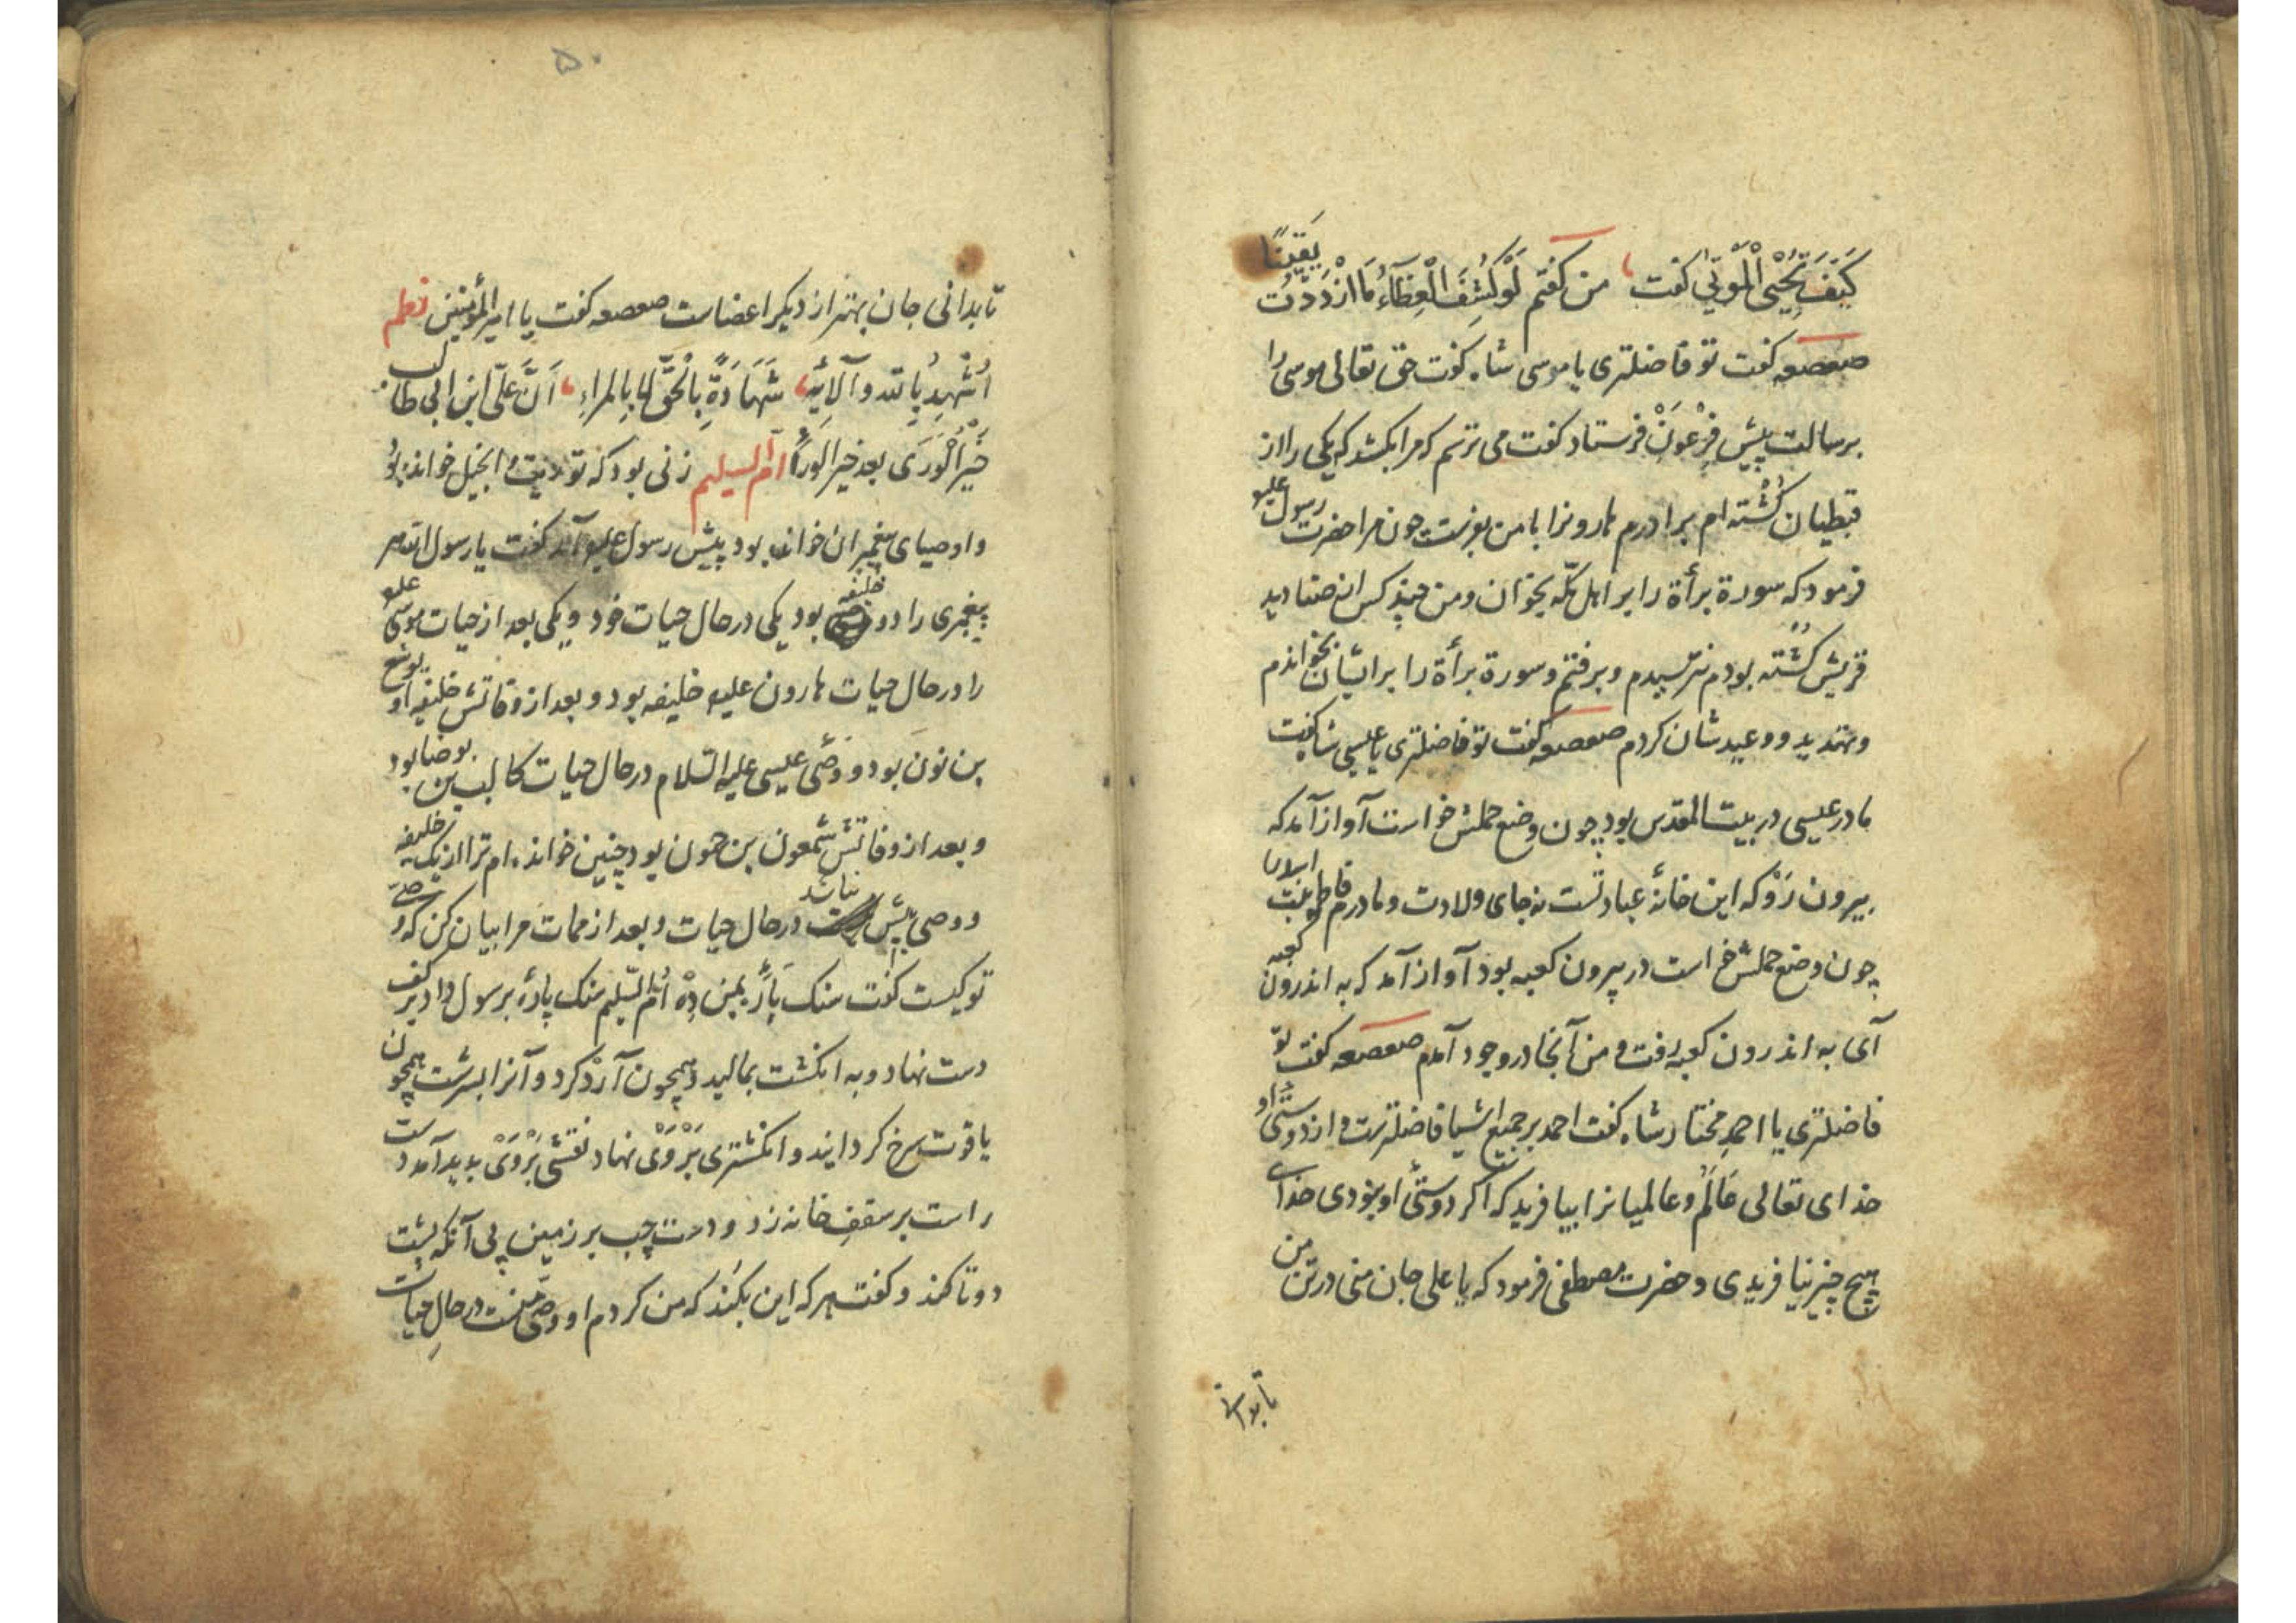 كَيْفَ تُحْيِي الْمَوْتى گفت من گفتم لَوْ كُشِفَ الْغِطَآءُ مَا ازْدَدْتُ يَقِينًا
صعصعه گفت تو فاضلتری یا موسی شاه گفت حق تعالی موسی را
برسالت پیش فِرْعَوْنْ فرستاد گفت می ترسم که مرا بکشد که یکی را از
قبطیان کُشْته ام برادرم هارونرا با من بفرست چون مرا حضرت رسول علیه
فرمود که سورة برأة را بر اهل مکّه بخوان و من چند کس از صنادید
قریش کُشته بودم نترسیدم و برفتم و سورة برأة را بر ایشان بخواندم
و تهدید و وعیدشان کردم صعصعه گفت تو فاضلتری یا عیسی شاه گفت
مادر عیسی در بیت المقدس بود چون وضع حملش خواست آواز آمد که
بیرون رَوْ که این خانۀ عبادتست نه جای ولادت و مادرم فاطمه بنت اسد را
چون وضع حملش خواست در بیرون کعبه بود آواز آمد که به اندرون کعبه
آی به اندرون کعبه رفت و من آنجا در وجود آمدم صعصعه گفت تو
فاضلتری یا احمدِ مختار شاه گفت احمد بر جمیع اشیا فاضلترست و از دوستئ او
خدای تعالی عَالَمْ و عالمیانرا بیافرید که اگر دوستئ او نبودی خدای
هیچ چیز نیافریدی و حضرت مصطفی فرمود که یا علی جان منی در تن من
تا بدانی
۵۰
تا بدانی جان بهتر از دیگر اعضاست صعصعه گفت یا امیر المؤمنین نظم
اُشْهِدُ بالله و آلَائِهِ شَهَادَةً بِالْحَقِّ لا بِالمراءِ اَنَّ عَلیّ ابن ابی طالب
خَيْرُ الْوَرَى بعد خیر الورَا امّ السلیم زنی بود که توریت و انجیل خوانده بود
و اوصیای پیغمبران خوانده بود پیش رسول علیه آمد گفت یا رسول الله هر
پیغمبری را دو خلیفه بود یکی در حال حیات خود و یکی بعد از حیات موسی علیه
را در حال حیات هارون علیه خلیفه بود و بعد از وفاتش خلیفه او یوشع
بن نون بود و وَصئ عیسی علیه السّلام در حال حیات کالب بن یوضا بود
و بعد از وفاتش شمعون بن حمون بود چنین خوانده ام ترا از یک خلیفه
و وصی بیش نباشد در حال حیات و بعد از ممات مرا بیان کن که وصی
تو کیست گفت سنک پارۀ بمن دِهْ اُمّ السّلیم سنک پارۀ برسول داد بر کف
دست نهاد و به انگشت بمالید و همچون آرْد کرد و آنرا بسرشت همچون
یاقوت سرخ گردانید و انگشتری بَرْوَیْ نهاد نقشی بَرْوَیْ پدید آمد دست
راست بر سقفِ خانه زد و دست چپ بر زمین بی آنکه پشت
دوتا کند و گفت هر که این بکُند که من کردم او وصئ منست در حالِ حیات